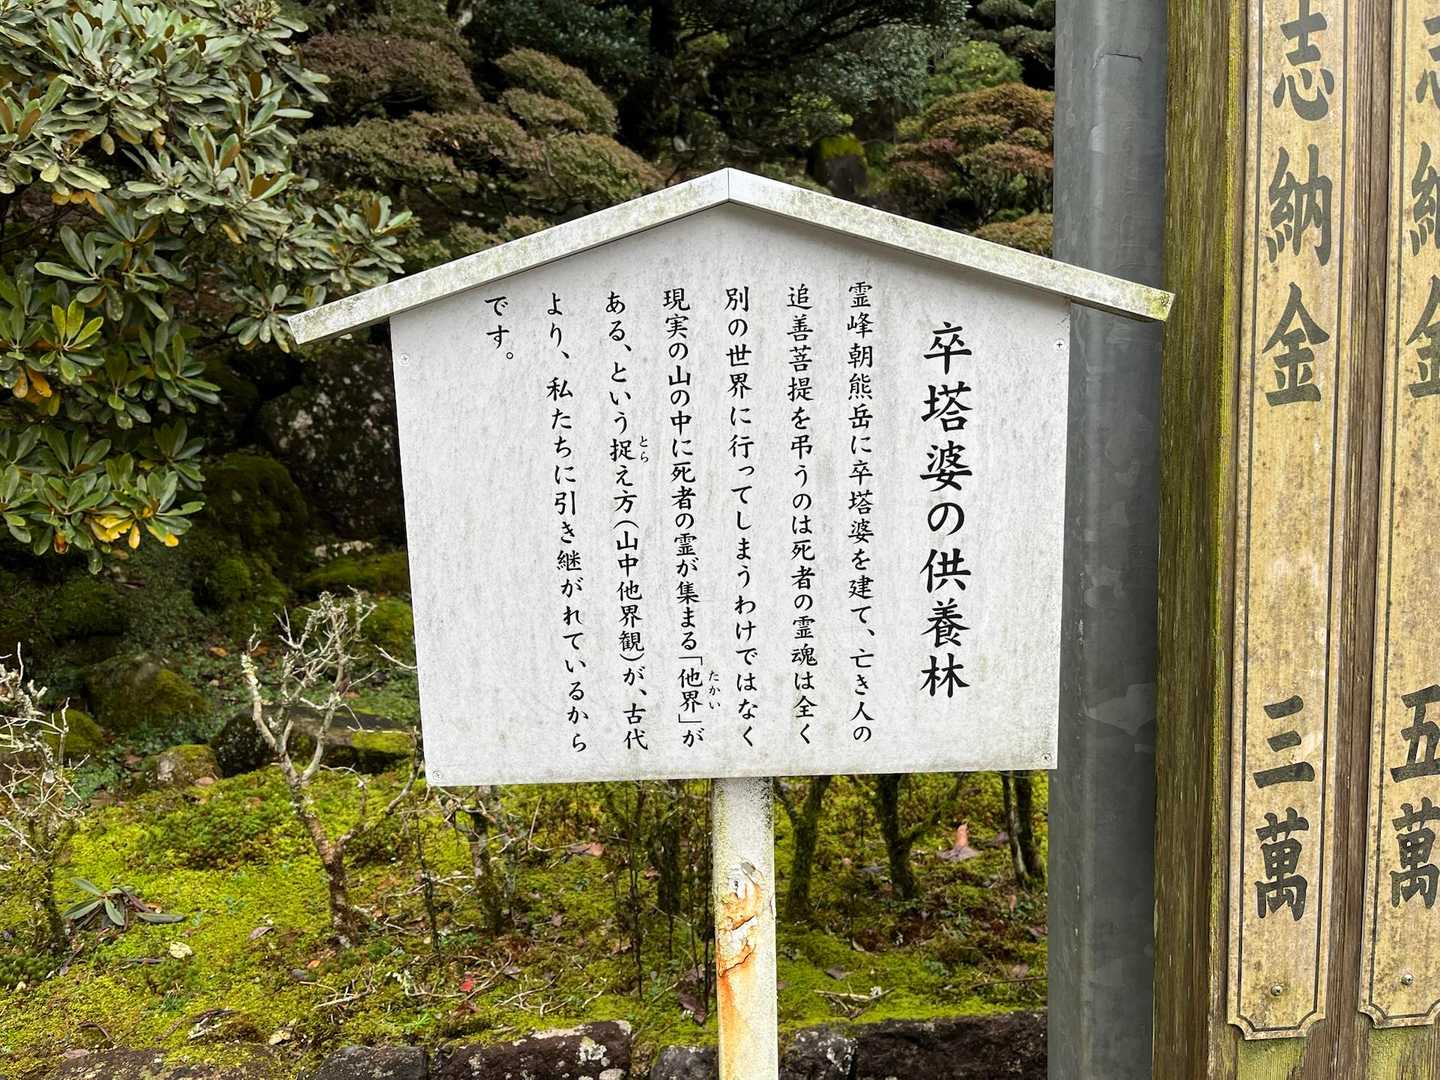 志納金 五萬
志納金 三萬
卒塔婆の供養林
霊峰朝熊岳に卒塔婆を建て、亡き人の
追善菩提を弔うのは死者の霊魂は全く
別の世界に行ってしまうわけではなく
現実の山の中に死者の霊が集まる「他界」が
たかい
ある、という捉え方(山中他界観)が、古代
とら
より、私たちに引き継がれているから
です。